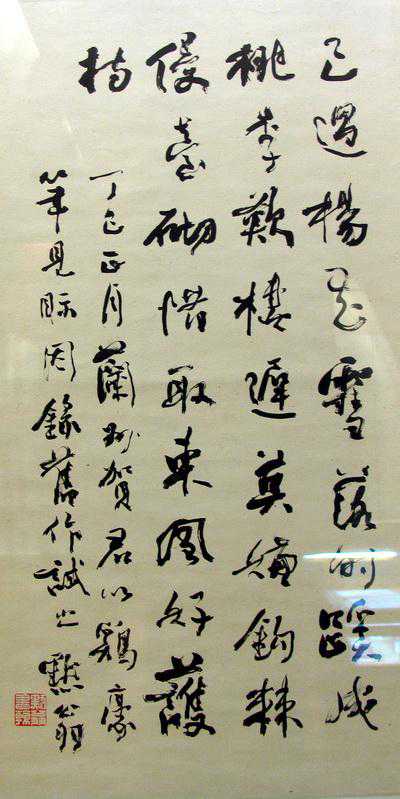 已過楊花雪落時蹊成
桃李歎棲遲莫嫌鉤棘
侵臺砌惜取東風好護
持
丁巳正月蘭州賀君以鷄豪
筆見貽因錄舊作試之 翁